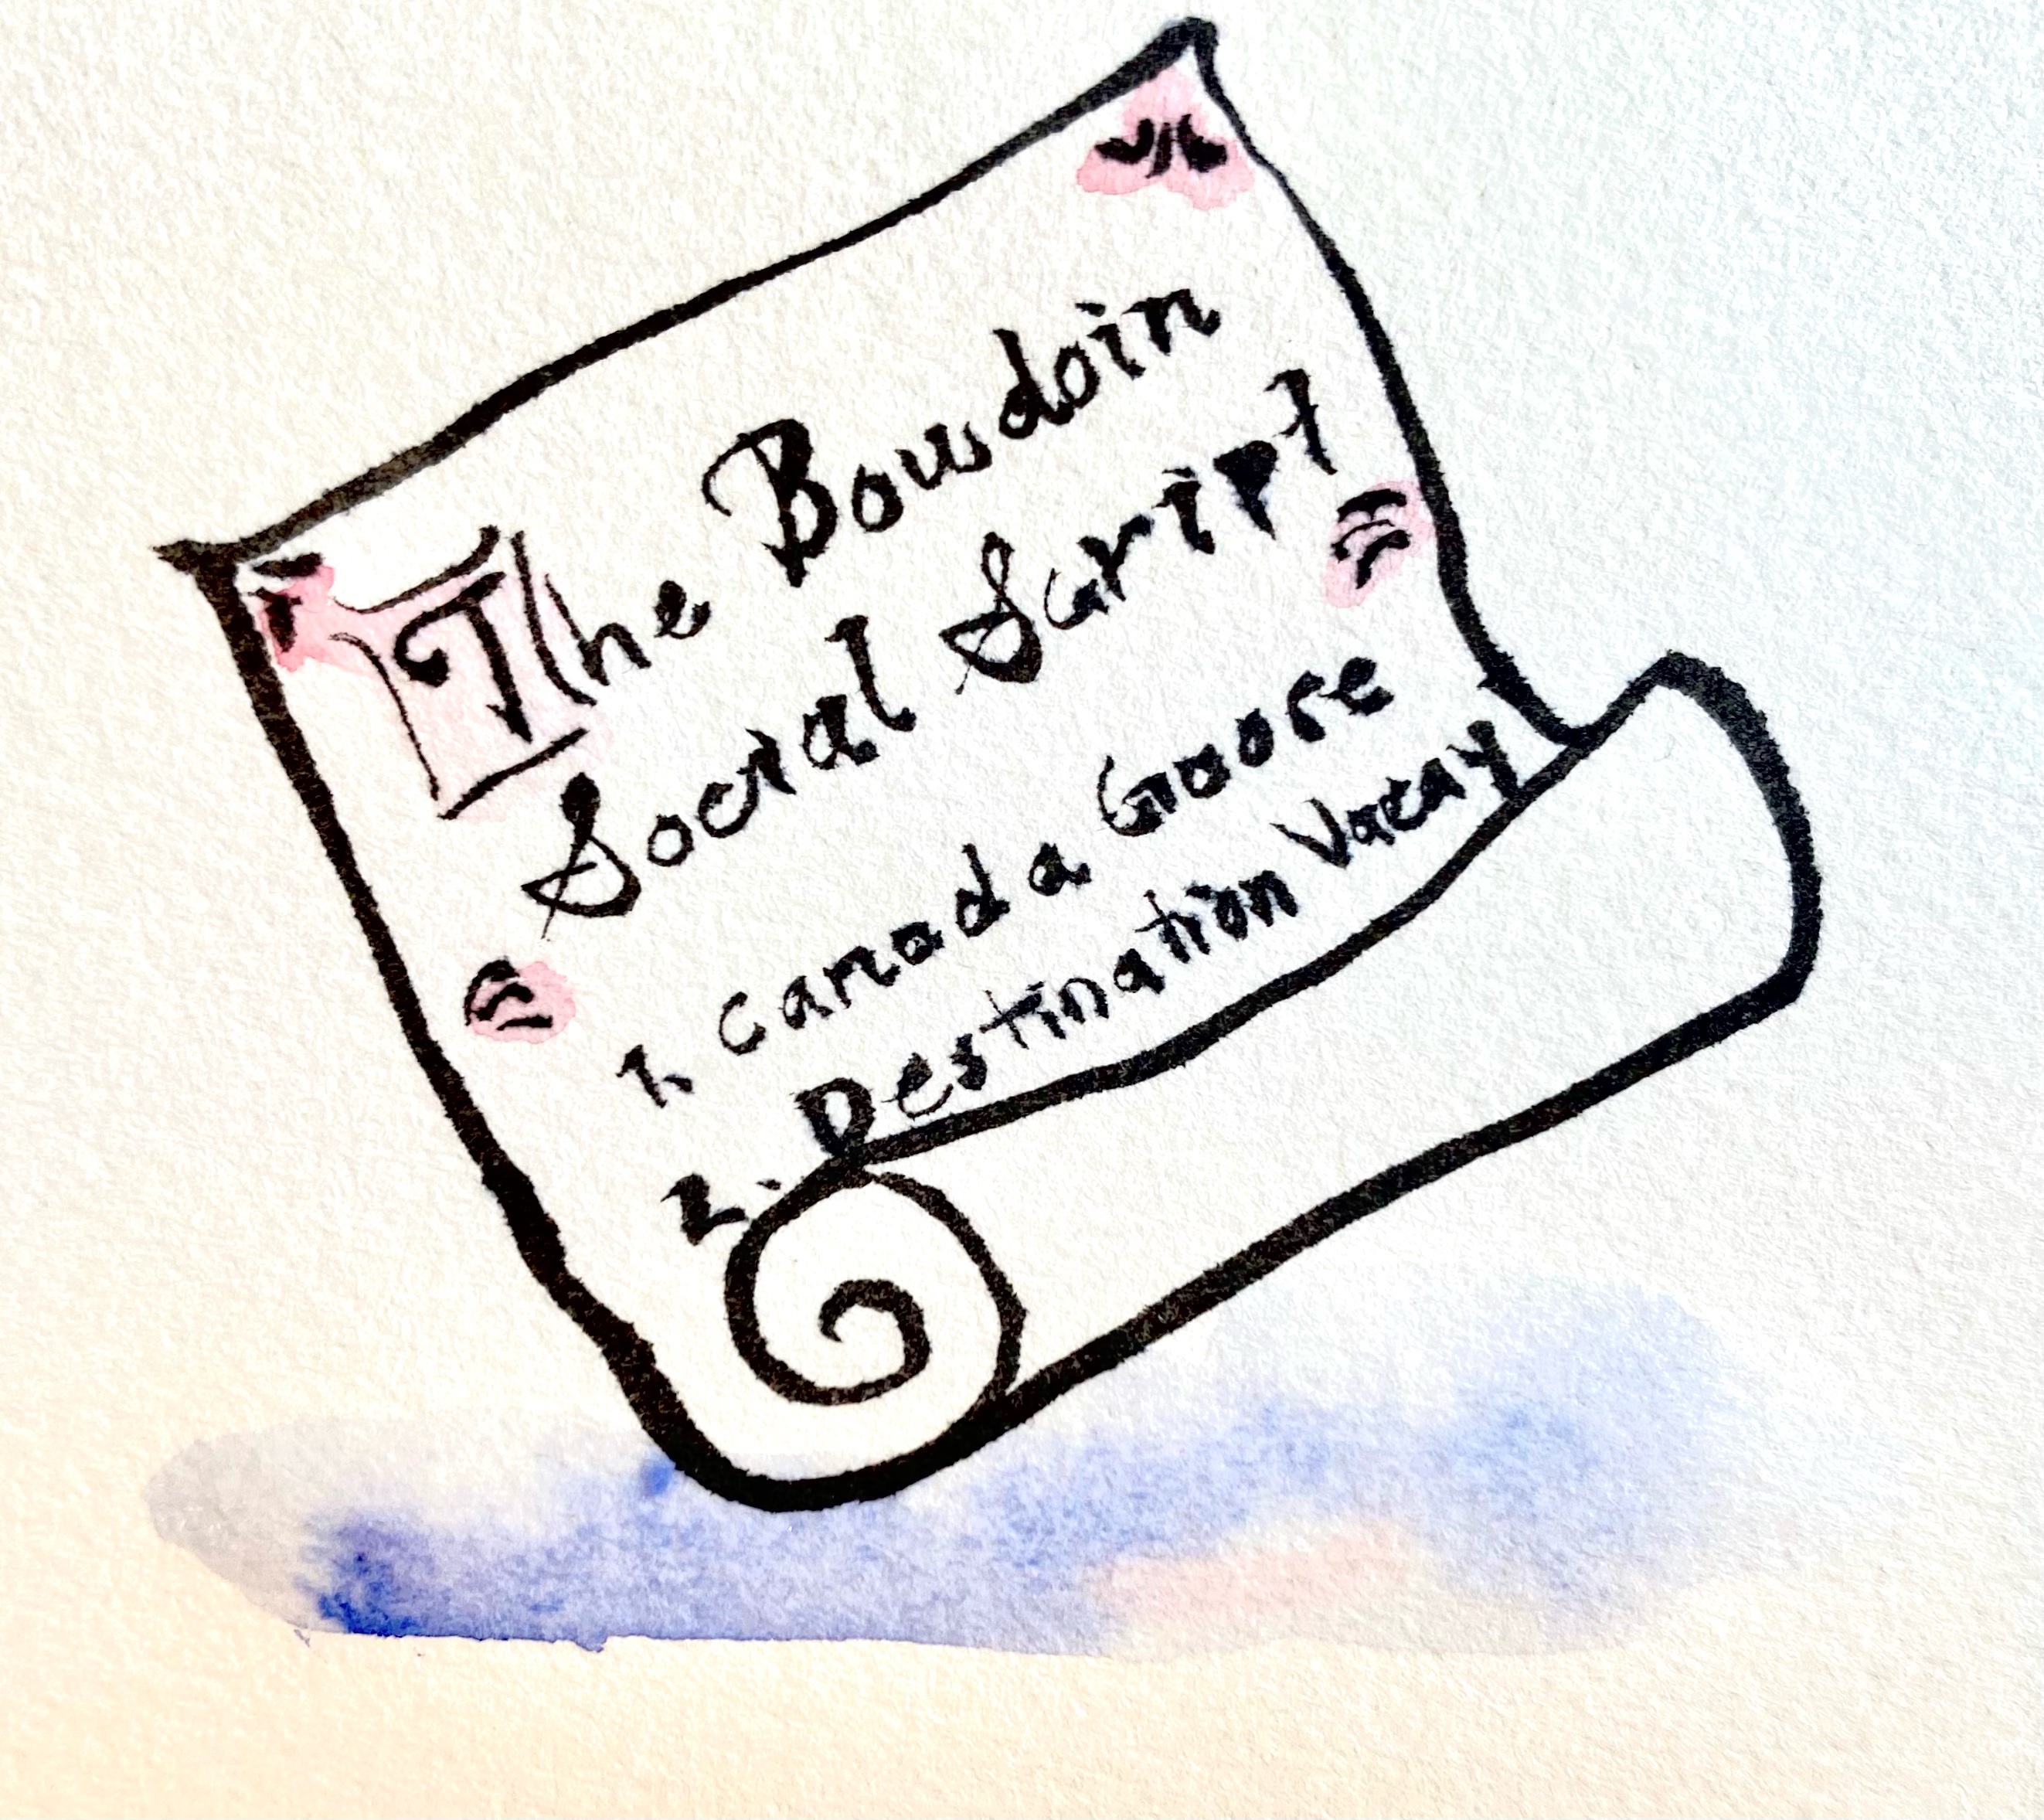 The Bowdoin
Social Script
1. Canada Goose
2. Destination Vacay